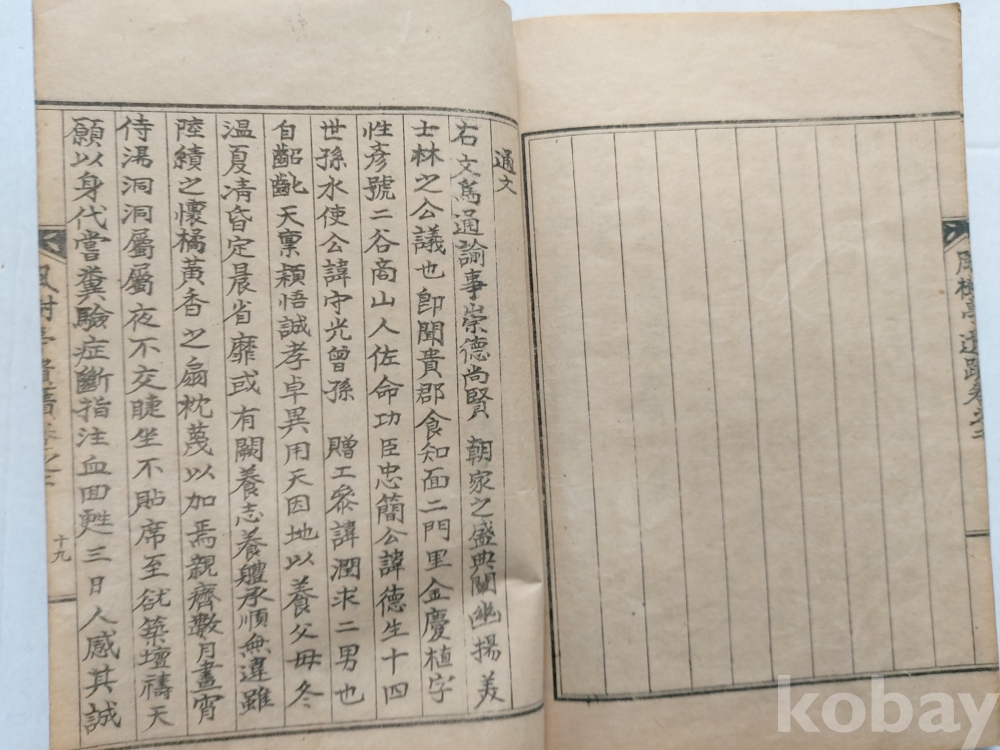 通文
右文爲通諭事崇德尚賢 朝家之盛典闡幽揚美
士林之公議也卽聞貴郡食知面二門里金慶植字
性彥號二谷商山人佐命功臣忠簡公諱德生十四
世孫水使公諱守光曾孫 贈工參諱潤求二男也
自齠齔天稟穎悟誠孝卓異用天因地以養父母冬
溫夏凊昏定晨省靡或有闕養志養軆承順無違雖
陸績之懷橘黃香之扇枕蔑以加焉親癠數月晝宵
侍湯洞洞屬屬夜不交睫坐不貼席至欲築壇禱天
願以身代嘗糞驗症斷指注血回甦三日人感其誠
十九
kobay